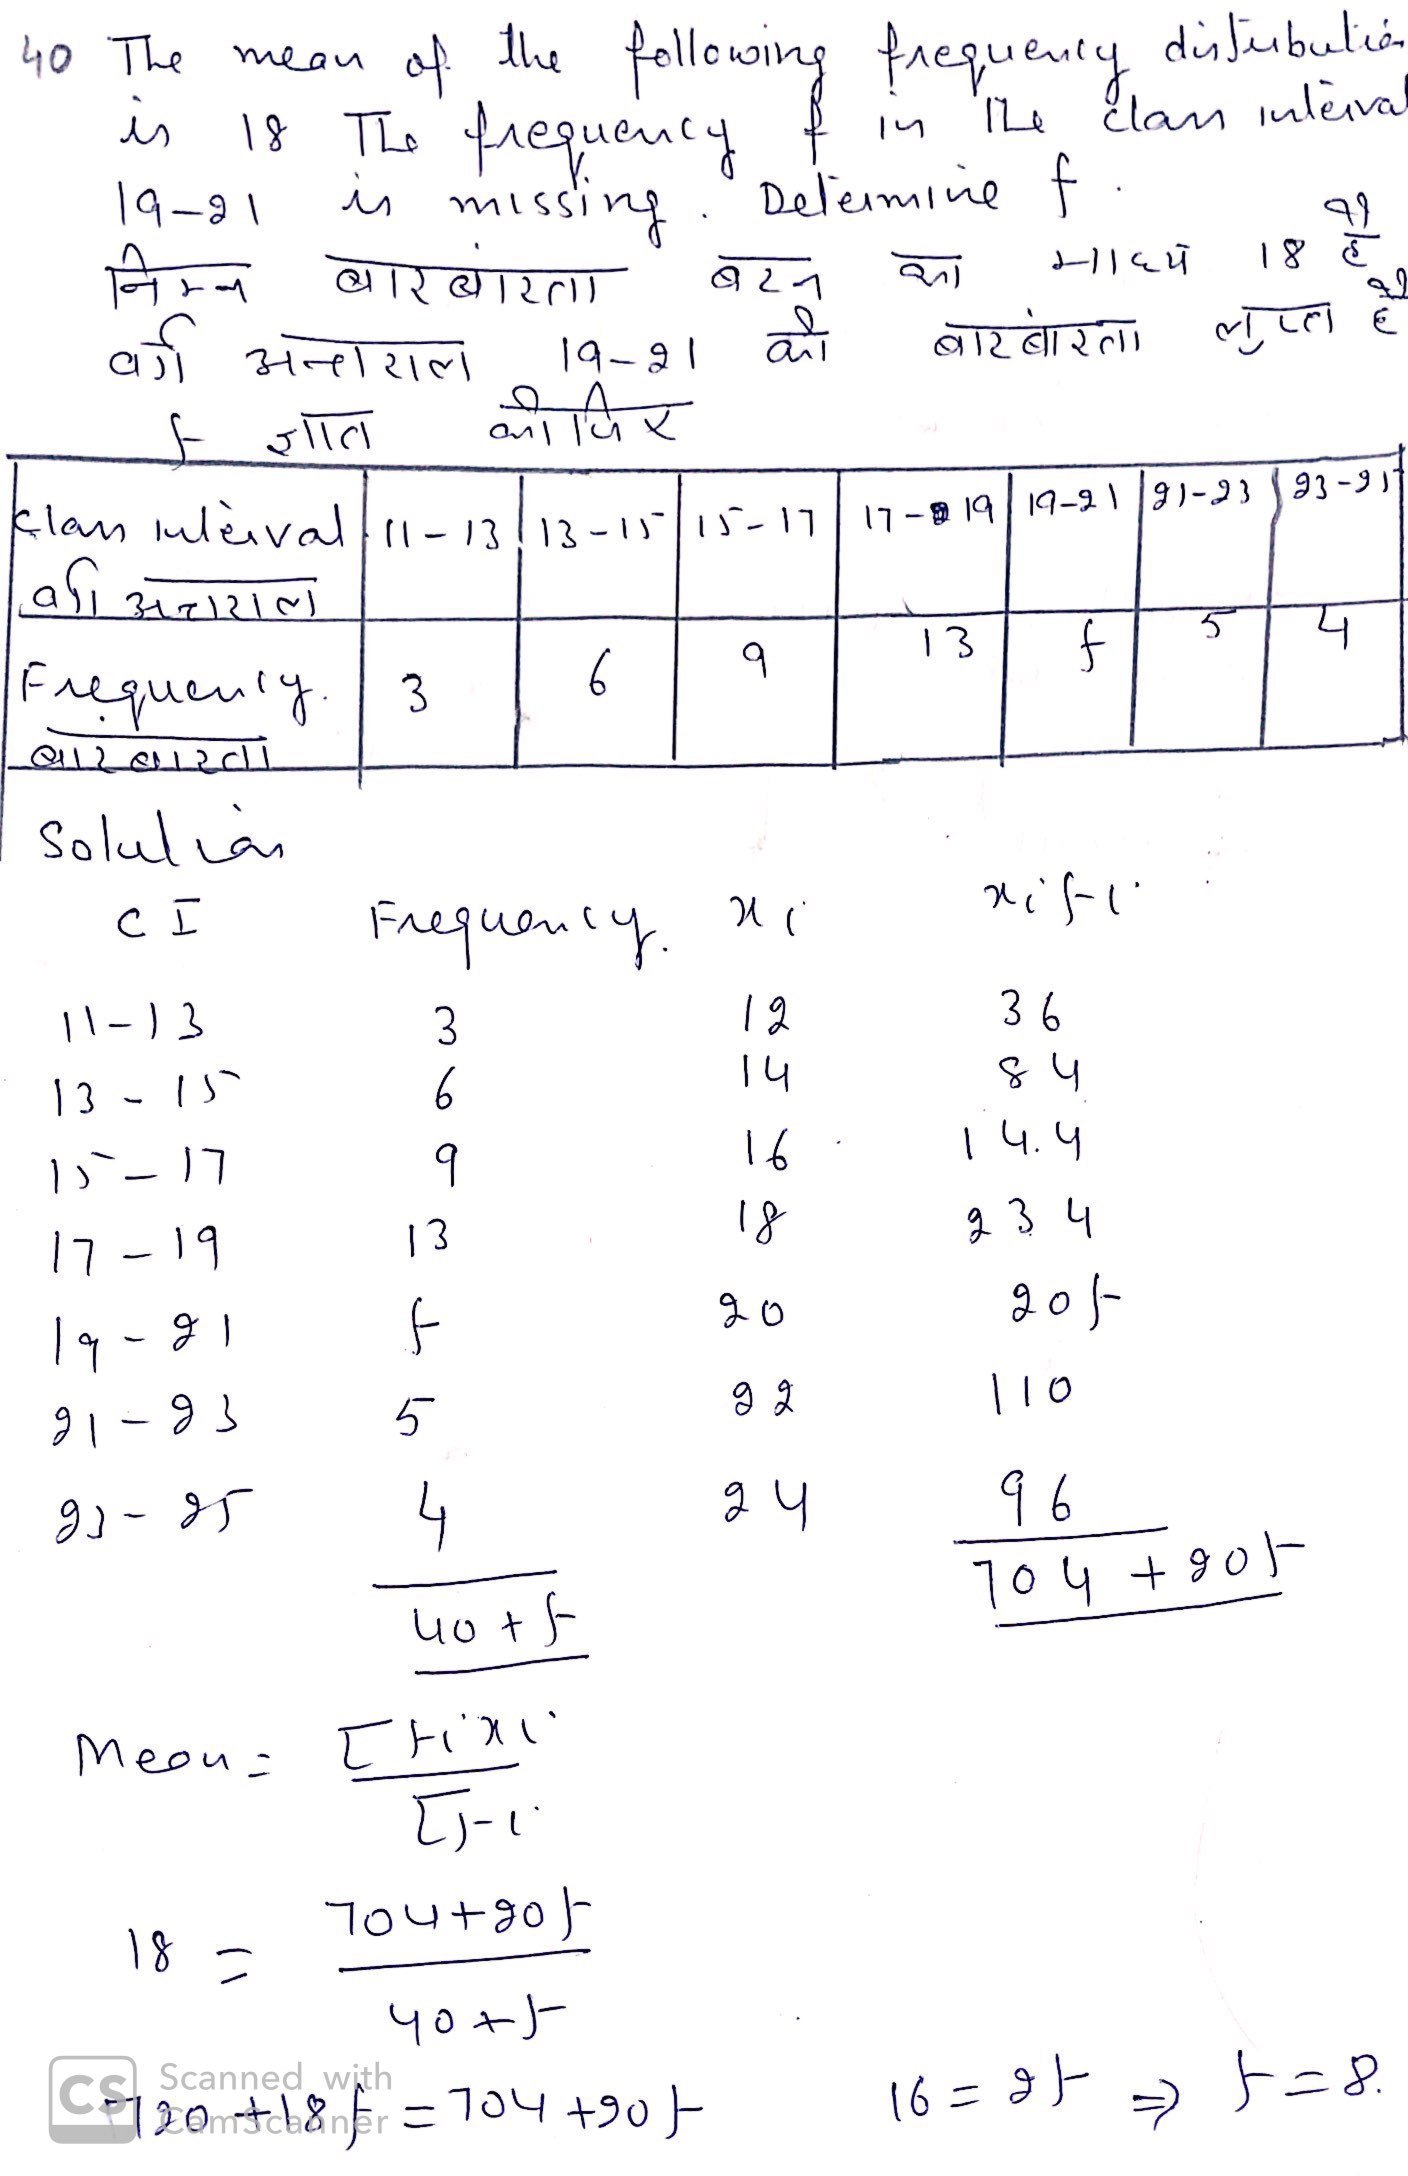 40 The mean of the following frequency distribution
is 18 The frequency f in the class interval
19-21 is missing. Determine f.
निम्न बारबारता बटन का माध्य 18 है
वर्ग अन्तराल 19-21 की बारंबारता लुप्त है
f ज्ञात कीजिए
Class interval 11-13 13-15 15-17 17-19 19-21 21-23 23-25
वर्ग अन्तराल
Frequency. 3 6 9 13 f 5 4
बारंबारता
Solution
CI Frequency. xi xifi
11-13 3 12 36
13-15 6 14 84
15-17 9 16 14.4
17-19 13 18 234
19-21 f 20 20f
21-23 5 22 110
23-25 4 24 96
40+f 704+20f
Mean = Σfixi
Σfi
18 = 704+20f
40+f
720+18f = 704+20f 16=2f ⇒ f=8.
CS Scanned with
CamScanner